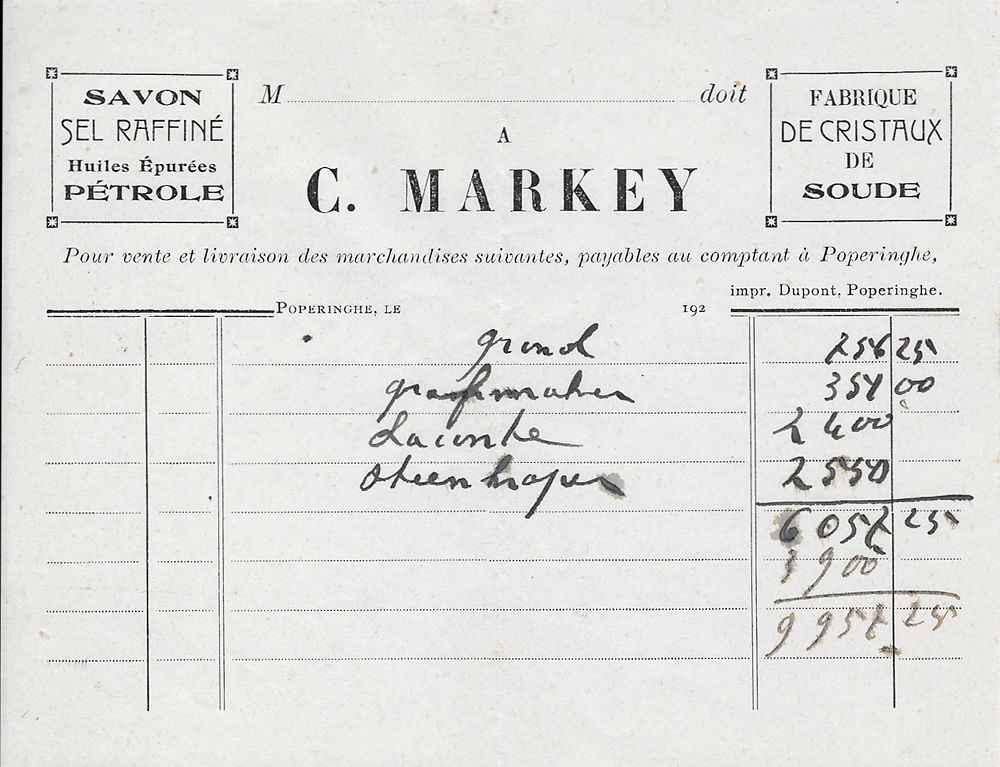 SAVON
SEL RAFFINÉ
Huiles Épurées
PÉTROLE
M doit
A
C. MARKEY
FABRIQUE
DE CRISTAUX
DE
SOUDE
Pour vente et livraison des marchandises suivantes, payables au comptant à Poperinghe,
impr. Dupont, Poperinghe.
POPERINGHE, LE 192
grond 756 25
grafmaker 351 00
2400
2550
6057 25
3900
9957 25